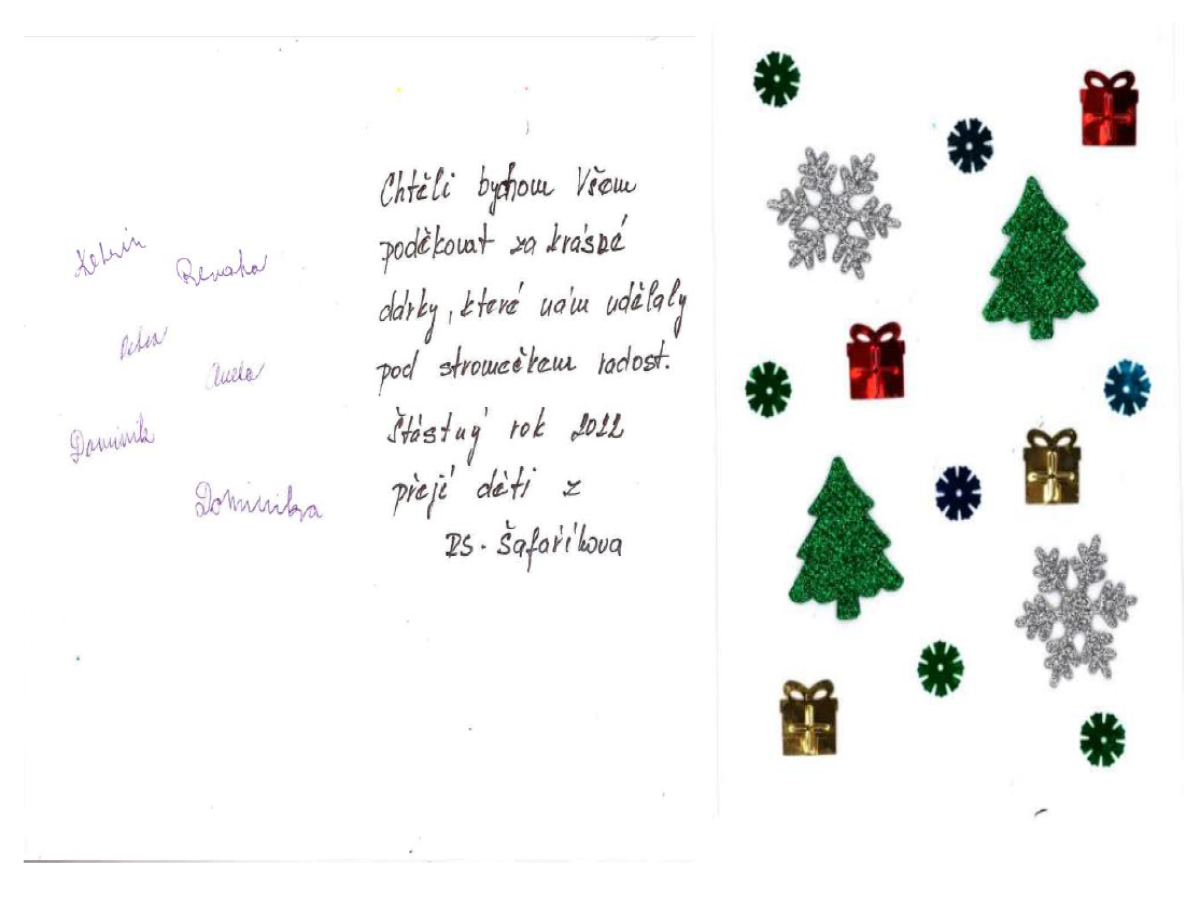 Chtěli bychom Všem
poděkovat za krásné
dárky, které nám udělaly
pod stromečkem radost.
Štástný rok 2022
přejí děti z
DS. Šafaříkova
Dominik
Dominika